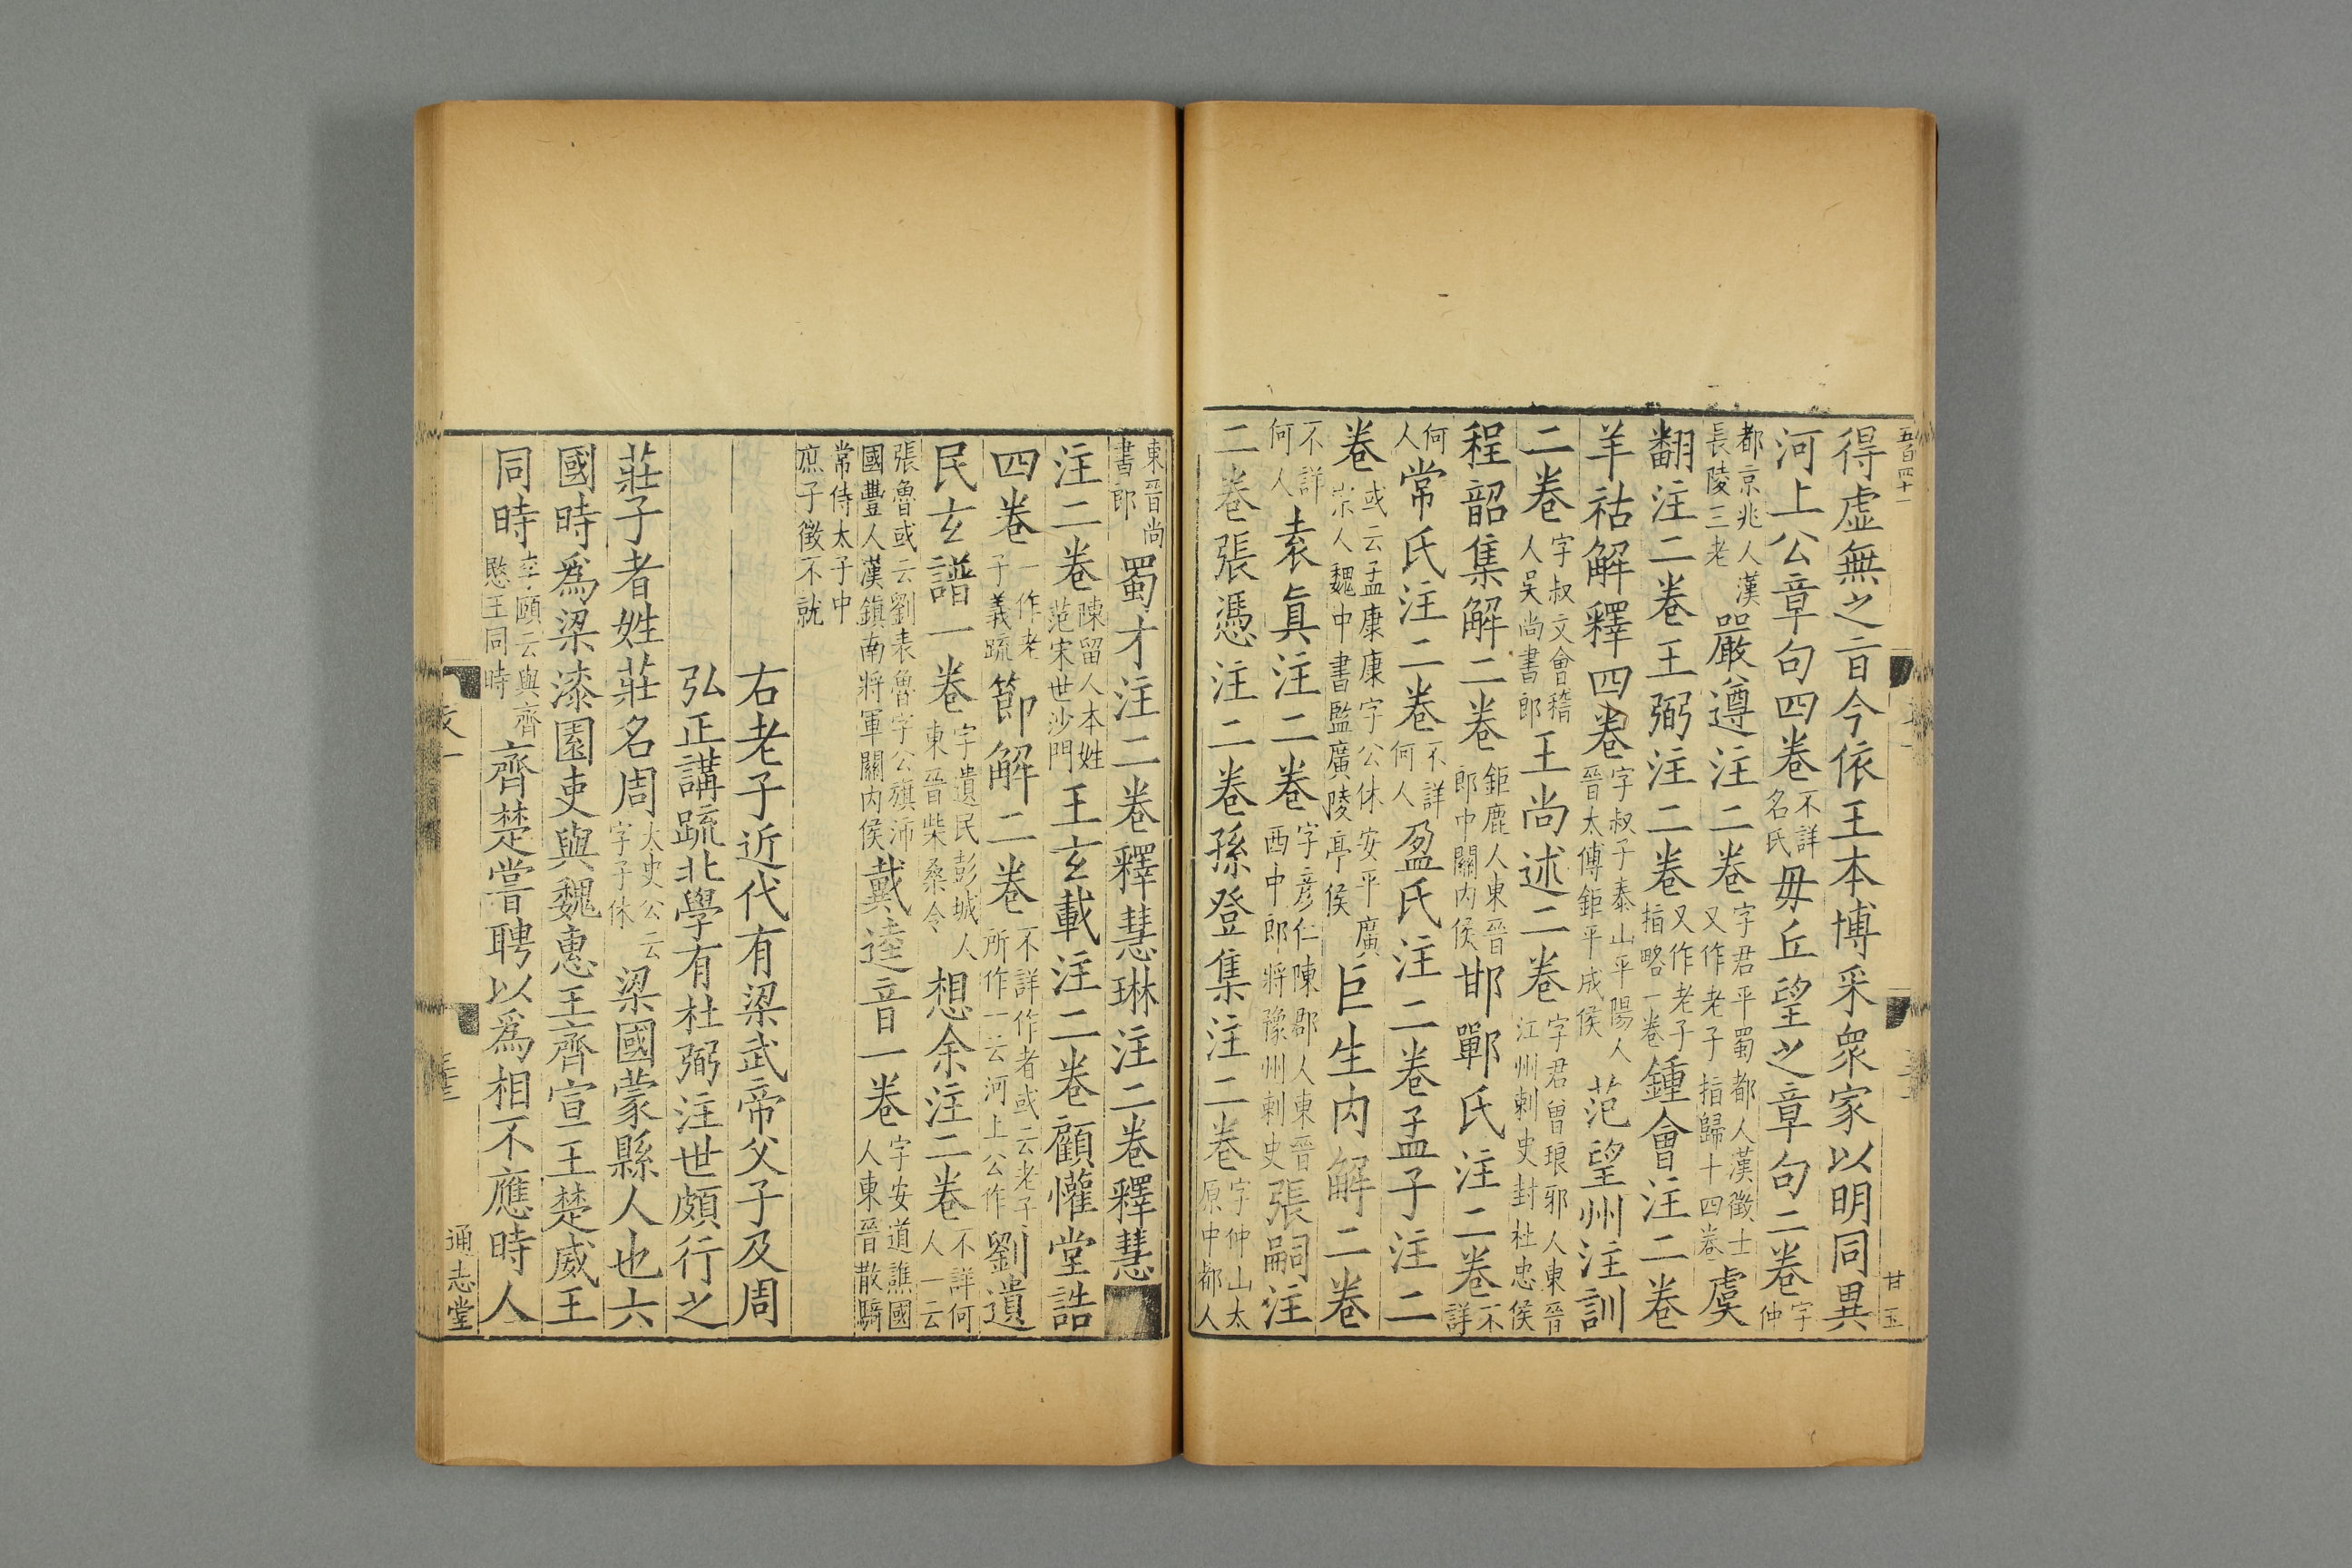 五百四十一
甘玉
得虛無之旨今依王本博采衆家以明同異
河上公章句四卷不詳名氏毋丘望之章句二卷字仲
都京兆人漢長陵三老嚴遵注二卷字君平蜀都人漢徵士又作老子指歸十四卷虞
翻注二卷王弼注二卷又作老子指略一卷鍾會注二卷
羊祜解釋四卷字叔子泰山平陽人晉太傅鉅平成侯范望州注訓
二卷字叔文會稽人吳尚書郎王尚述二卷字君曾琅邪人東晉江州刺史封杜忠侯
程韶集解二卷鉅鹿人東晉郎中關內侯邯鄲氏注二卷不詳
何人常氏注二卷不詳何人盈氏注二卷孟子注二
卷或云孟康康字公休安平廣宗人魏中書監廣陵亭侯巨生內解二卷
不詳何人袁眞注二卷字彥仁陳郡人東晉西中郎將豫州刺史張嗣注
二卷張憑注二卷孫登集注二卷字仲山太原中都人
東晉尚書郎蜀才注二卷釋慧琳注二卷釋慧
注二卷陳留人本姓范宋世沙門王玄載注二卷顧懽堂誥
四卷一作老子義疏節解二卷不詳作者或云老子所作一云河上公作劉遺
民玄譜一卷字遺民彭城人東晉柴桑令想余注二卷不詳何人一云
張魯或云劉表魯字公旗沛國豐人漢鎮南將軍關內侯戴逵音一卷字安道譙國人東晉散騎
常侍太子中庶子徵不就
右老子近代有梁武帝父子及周
弘正講疏北學有杜弼注世頗行之
莊子者姓莊名周太史公云字子休梁國蒙縣人也六
國時爲梁漆園吏與魏惠王齊宣王楚威王
同時李頤云與齊愍王同時齊楚嘗聘以爲相不應時人
通志堂